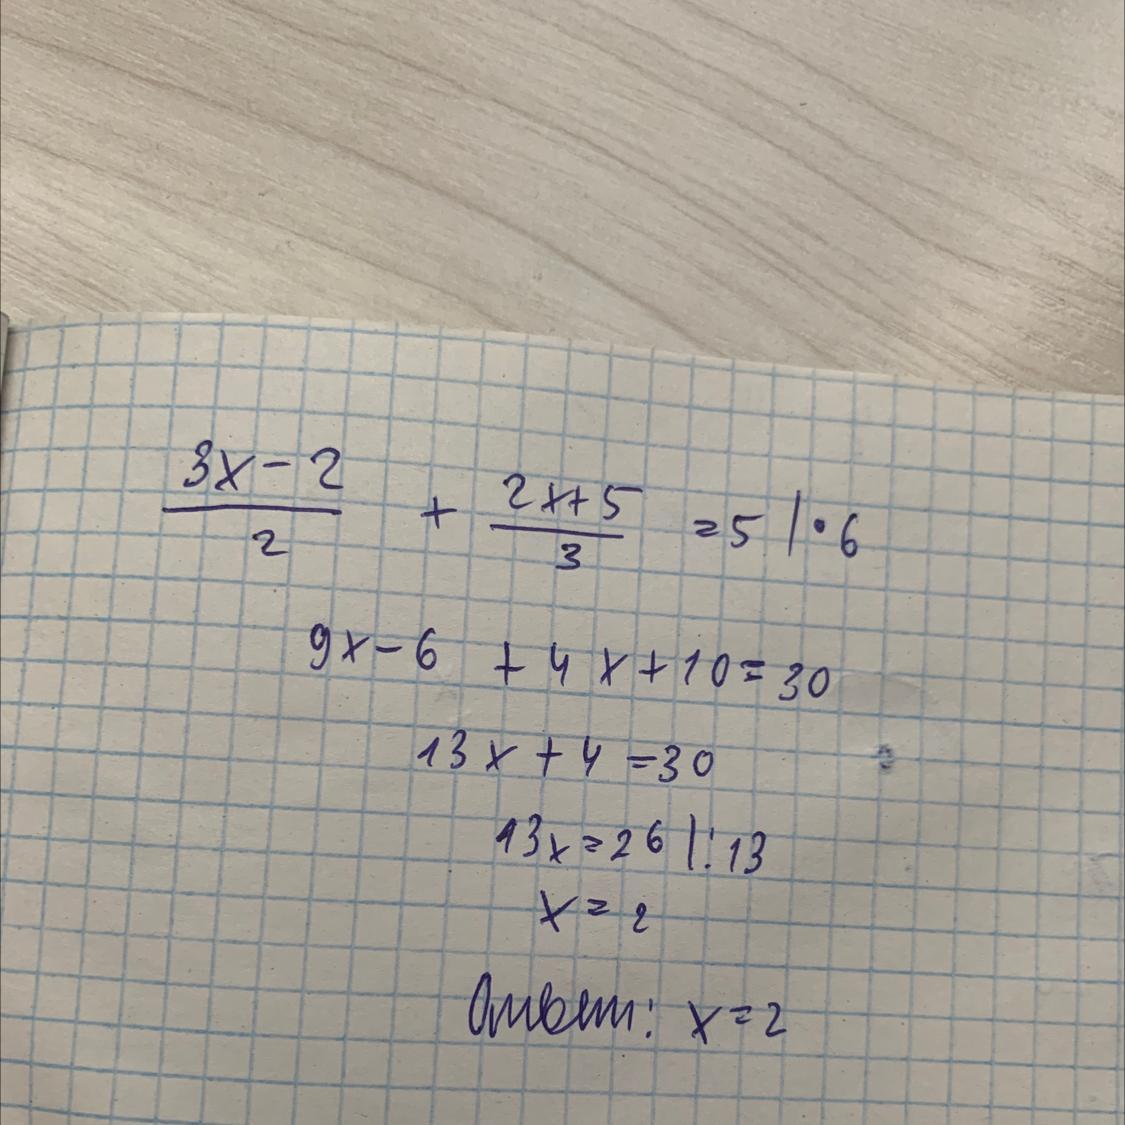 (3x-2)/2 + (2x+5)/3 =5 |•6
9x-6 +4x+10=30
13x+4=30
13x=26|:13
x=2
Ответ: x=2